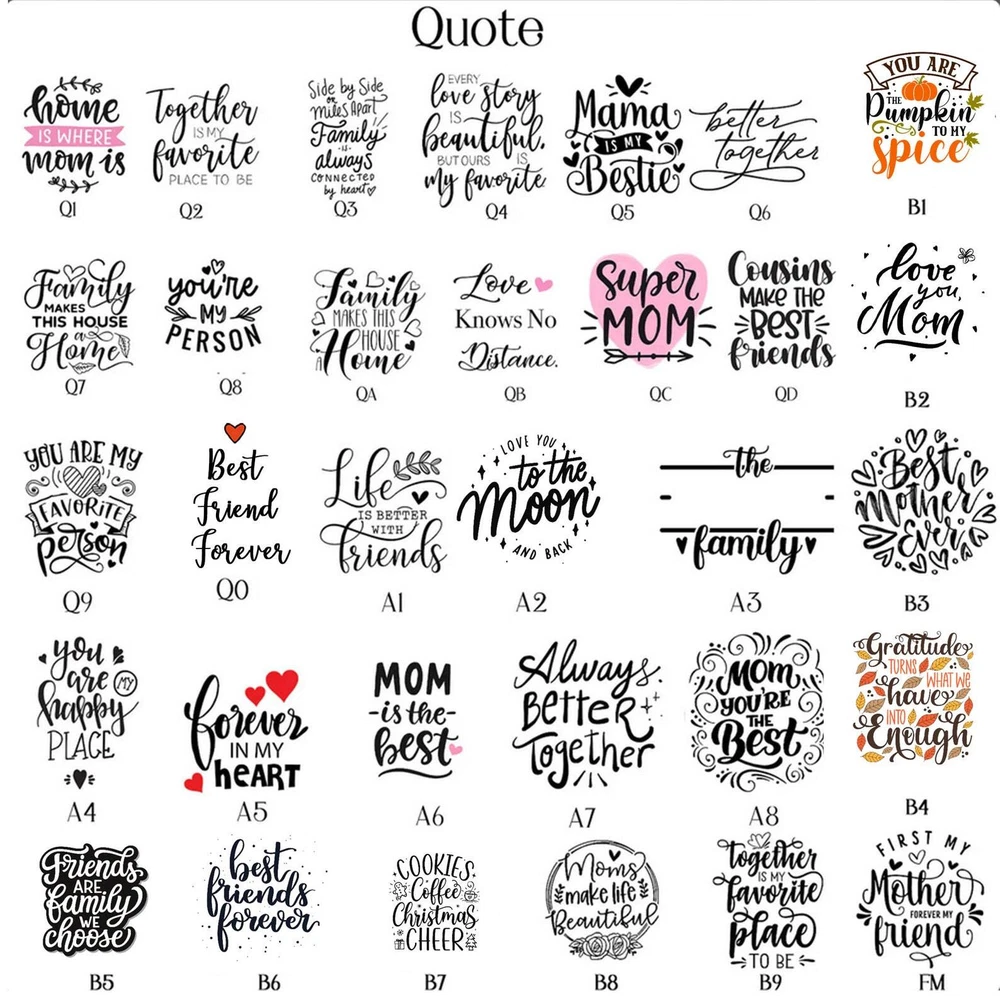 Quote
home
IS WHERE
mom is
Q1
Together
IS MY
favorite
PLACE TO BE
Q2
Side by Side
or
Miles Apart
Family
is
always
CONNECTED
by heart
Q3
EVERY
love story
IS
beautiful,
BUT OURS IS
my favorite
Q4
Mama
IS MY
Bestie
Q5
better
together
Q6
YOU ARE
THE
Pumpkin
TO MY
spice
B1
Family
MAKES
THIS HOUSE
a
Home
Q7
you're
MY
PERSON
Q8
Family
MAKES THIS
HOUSE
A
Home
QA
Love
Knows No
Distance.
QB
Super
MOM
QC
Cousins
MAKE THE
BEST
friends
QD
love
you,
Mom
B2
YOU ARE MY
FAVORITE
person
Q9
Best
Friend
Forever
Q0
Life
IS BETTER
WITH
friends
A1
LOVE YOU
to the
Moon
AND BACK
A2
the
family
A3
Best
Mother
Ever
B3
you
are
MY
happy
PLACE
A4
forever
IN MY
heART
A5
MOM
-is the-
best
A6
Always
Better
Together
A7
Mom
YOU'RE
THE
Best
A8
Gratitude
TURNS WHAT WE
have
INTO
Enough
B4
Friends
ARE
family
WE
choose
B5
best
friends
forever
B6
COOKIES
Coffee
Christmas
CHEER
B7
Moms
make life
Beautiful
B8
together
IS MY
favorite
place
TO BE
B9
FIRST MY
Mother
FOREVER MY
friend
FM